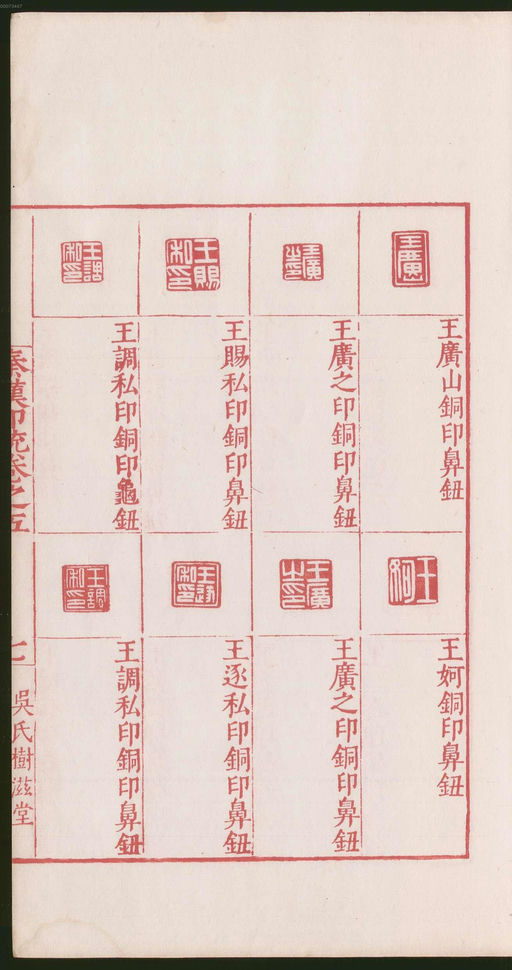 00073447
王廣
王廣山銅印鼻鈕
王妸
王妸銅印鼻鈕
王廣之印
王廣之印銅印鼻鈕
王廣之印
王廣之印銅印鼻鈕
王賜私印
王賜私印銅印鼻鈕
王逐私印
王逐私印銅印鼻鈕
王調私印
王調私印銅印龜鈕
王調私印
王調私印銅印鼻鈕
秦漢印統卷之五
七
吳氏樹滋堂